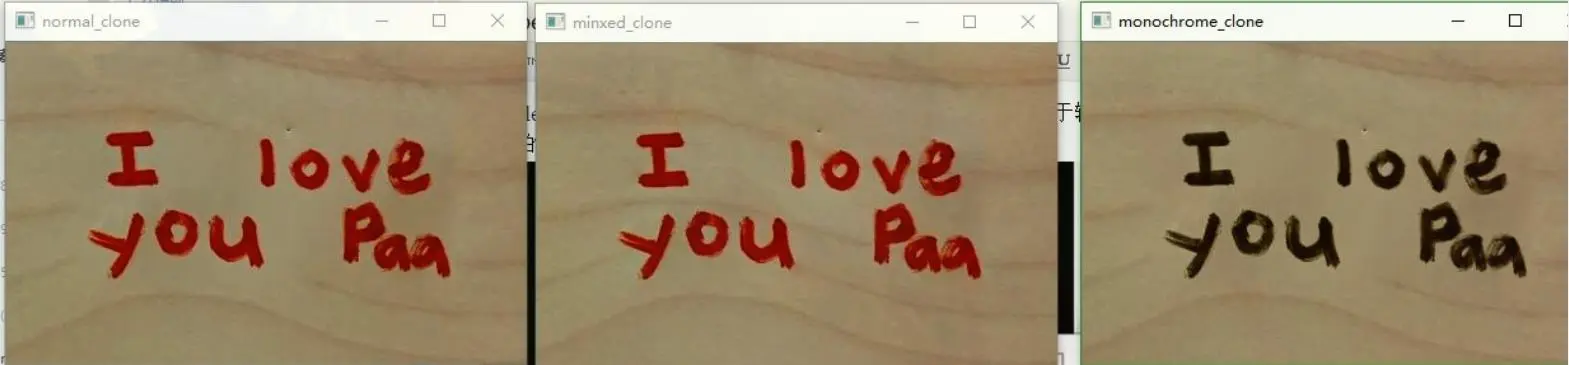 normal_clone
I love
you Paa
minxed_clone
I love
you Paa
U
于
monochrome_clone
I love
you Paa